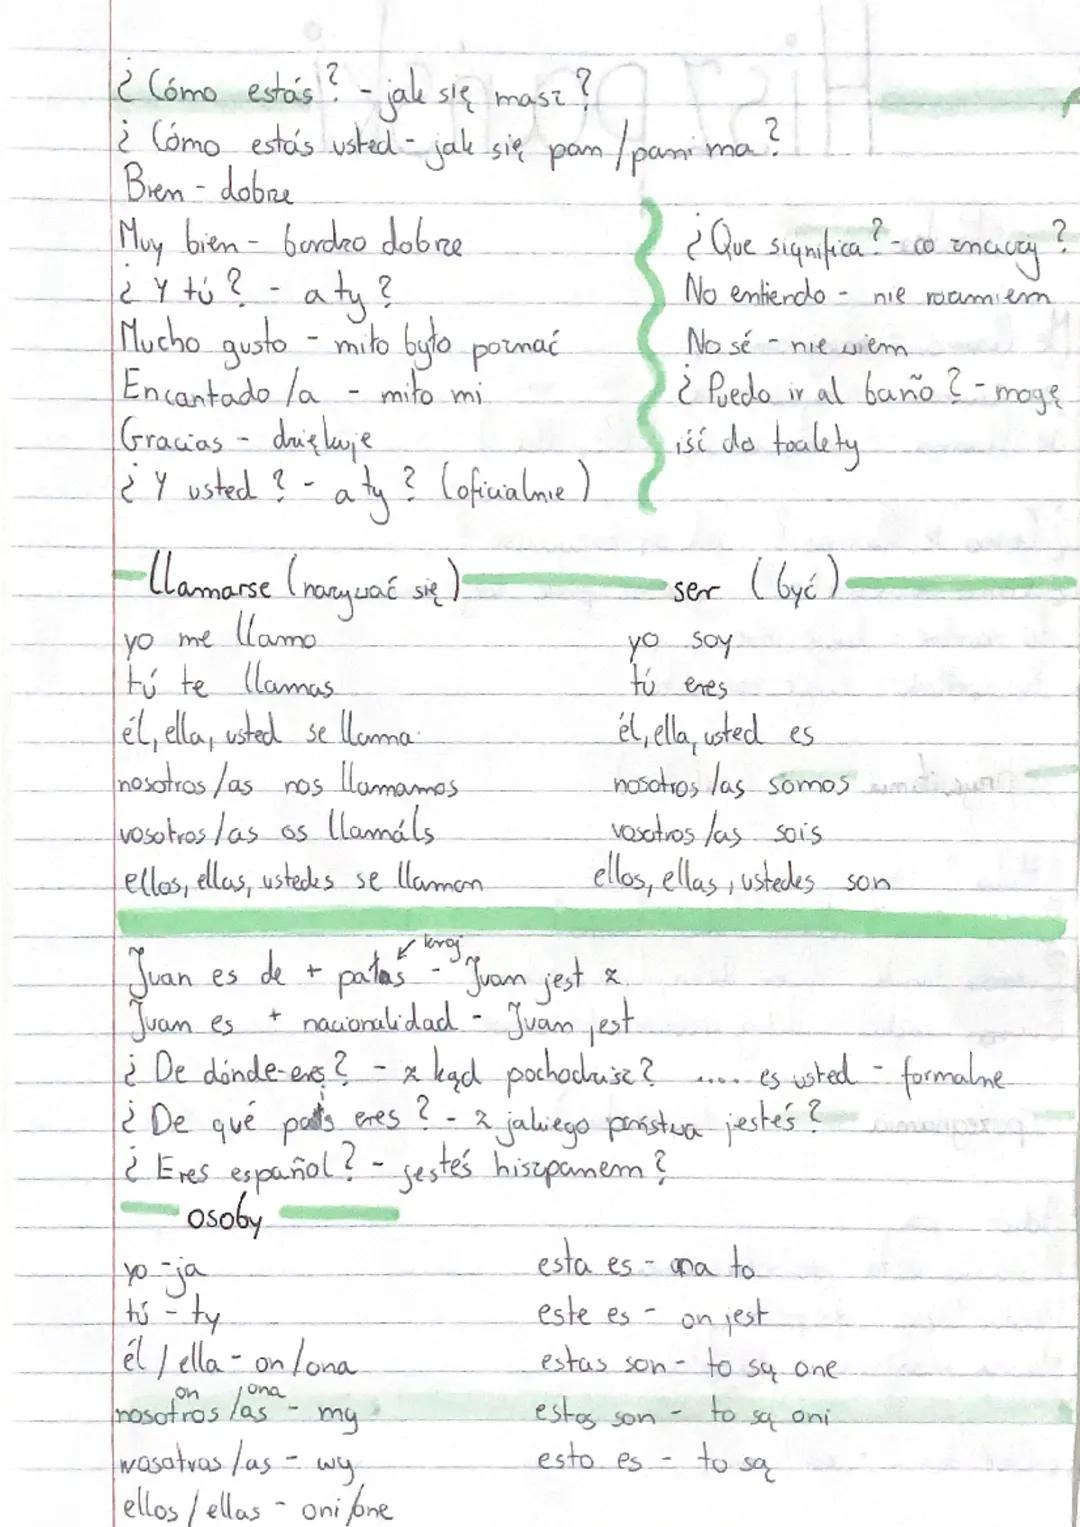 ¿Cómo estás? - jak się masz?
¿Cómo estás usted - jak się pan/pani ma?
Bien - dobrze
Muy bien - bardzo dobrze
¿Y tú? - a ty?
Mucho gusto - miło było poznać
Encantado/a - miło mi
Gracias - dziękuje
¿Y usted? - a ty? (oficialnie)
¿Que significa? - co znaczy?
No entiendo - nie rozumiem
No sé - nie wiem
¿Puedo ir al baño? - mogę
iść do toalety
llamarse (nazywać się)
yo me llamo
tú te llamas
él, ella, usted se llama
nosotros/as nos llamamos
vosotros/as os llamáls
ellos, ellas, ustedes se llaman
ser (być)
yo soy
tú eres
él, ella, usted es
nosotros/as somos
vosotros/as sois
ellos, ellas, ustedes son
kraj
Juan es de + - Juan jest z
Juan es + nacionalidad - Juan jest
¿De dónde eres? - z kąd pochodzisz? .... es usted - formalne
¿De qué eres? - z jakiego państwa jesteś?
¿Eres español? - jesteś hiszpanem?
osoby
yo - ja
tú - ty
él / ella - on/ona
on /ona
nosotros/as - my
wosotras/as - wy
ellos/ellas - oni/one
esta es - ona to
este es - on jest
estas son - to są one
estos son - to są oni
esto es - to są